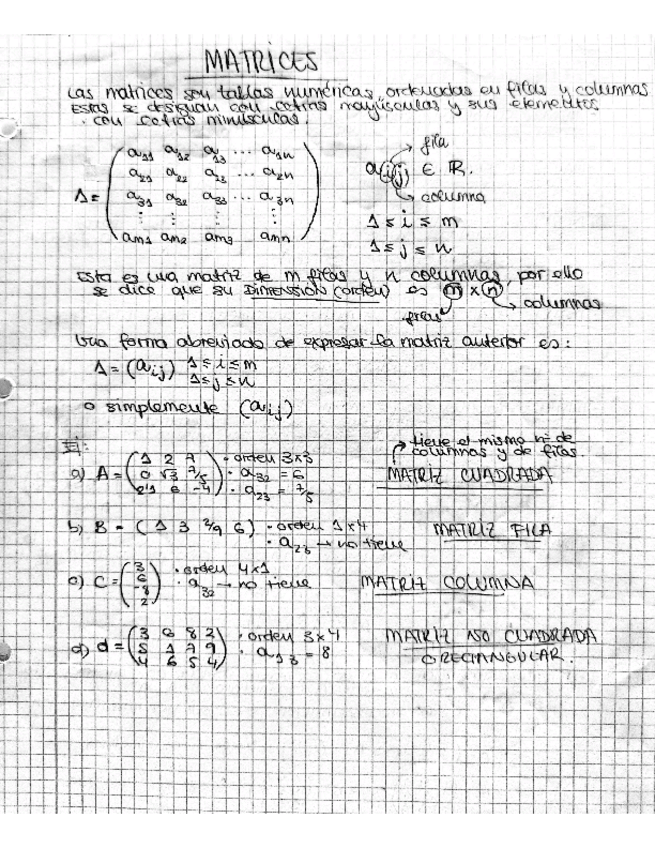 MATRICES
Las matrices son tablas numéricas, ordenadas en filas y columnas
Estas se designan con letras mayúsculas y sus elementos
con letras minúsculas.
A = ( a11 a12 a13 ... a1n
a21 a22 a23 ... a2n
a31 a32 a33 ... a3n
⋮ ⋮ ⋮ ⋮
am1 am2 am3 amn )
fila
a(i)(j) ∈ R.
columna
1 ≤ i ≤ m
1 ≤ j ≤ n
Esta es una matriz de m filas y n columnas, por ello
se dice que su DIMENSIÓN (orden) es m × n
columnas
filas
Una forma abreviada de expresar la matriz anterior es:
A = (aij) 1 ≤ i ≤ m
1 ≤ j ≤ n
o simplemente (aij)
Ej:
tiene el mismo nº de
columnas y de filas
a) A = ( 1 2 7 · orden 3x3
0 √3 7/5 · a32 = 6
2'1 6 -4 ) · a23 = 7/5
MATRIZ CUADRADA
b) B = ( 1 3 2/9 6 ) · orden 1x4
· a23 → no tiene
MATRIZ FILA
c) C = ( 3 6 -8 2 ) · orden 4x1
· a32 → no tiene
MATRIZ COLUMNA
d) d = ( 3 6 8 2 · orden 3x4
5 1 7 9 · a13 = 8
4 6 5 4 )
MATRIZ NO CUADRADA
O RECTANGULAR.